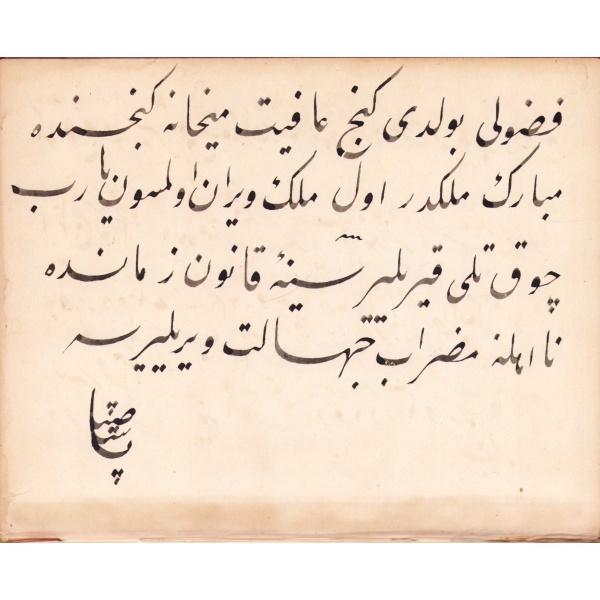 فضولی بولدی کنج عافیت میخانه کنجنده
مبارک ملکدر اول ملک ویران اولمسون یا رب
چوق تلی قیریلیر سینهٔ قانون زمانده
نا اهلنه مضراب جهالت ویریلیرسه